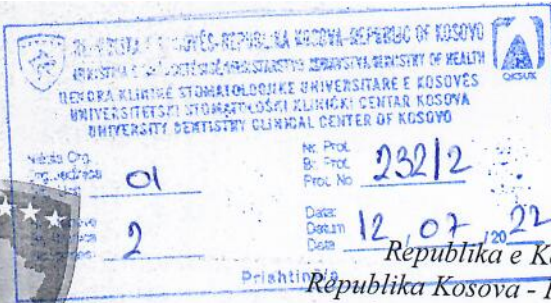 REPUBLIKA E KOSOVËS-REPUBLIKA KOSOVA-REPUBLIC OF KOSOVO
MINISTRIA E SHËNDETËSISË-MINISTARSTVO ZDRAVSTVA-MINISTRY OF HEALTH
QENDRA KLINIKE STOMATOLOGJIKE UNIVERSITARE E KOSOVËS
UNIVERSITETSKI STOMATOLOŠKI KLINIČKI CENTAR KOSOVA
UNIVERSITY DENTISTRY CLINICAL CENTER OF KOSOVO
QKSUK
Njësia Org.
Org. Jedinica
01
Nr. Prot.
Br. Prot.
Prot. No
232/2
2
Data:
Datum
Date
12, 07, 2022
Prishtinë/a
Republika e K
Republika Kosova -